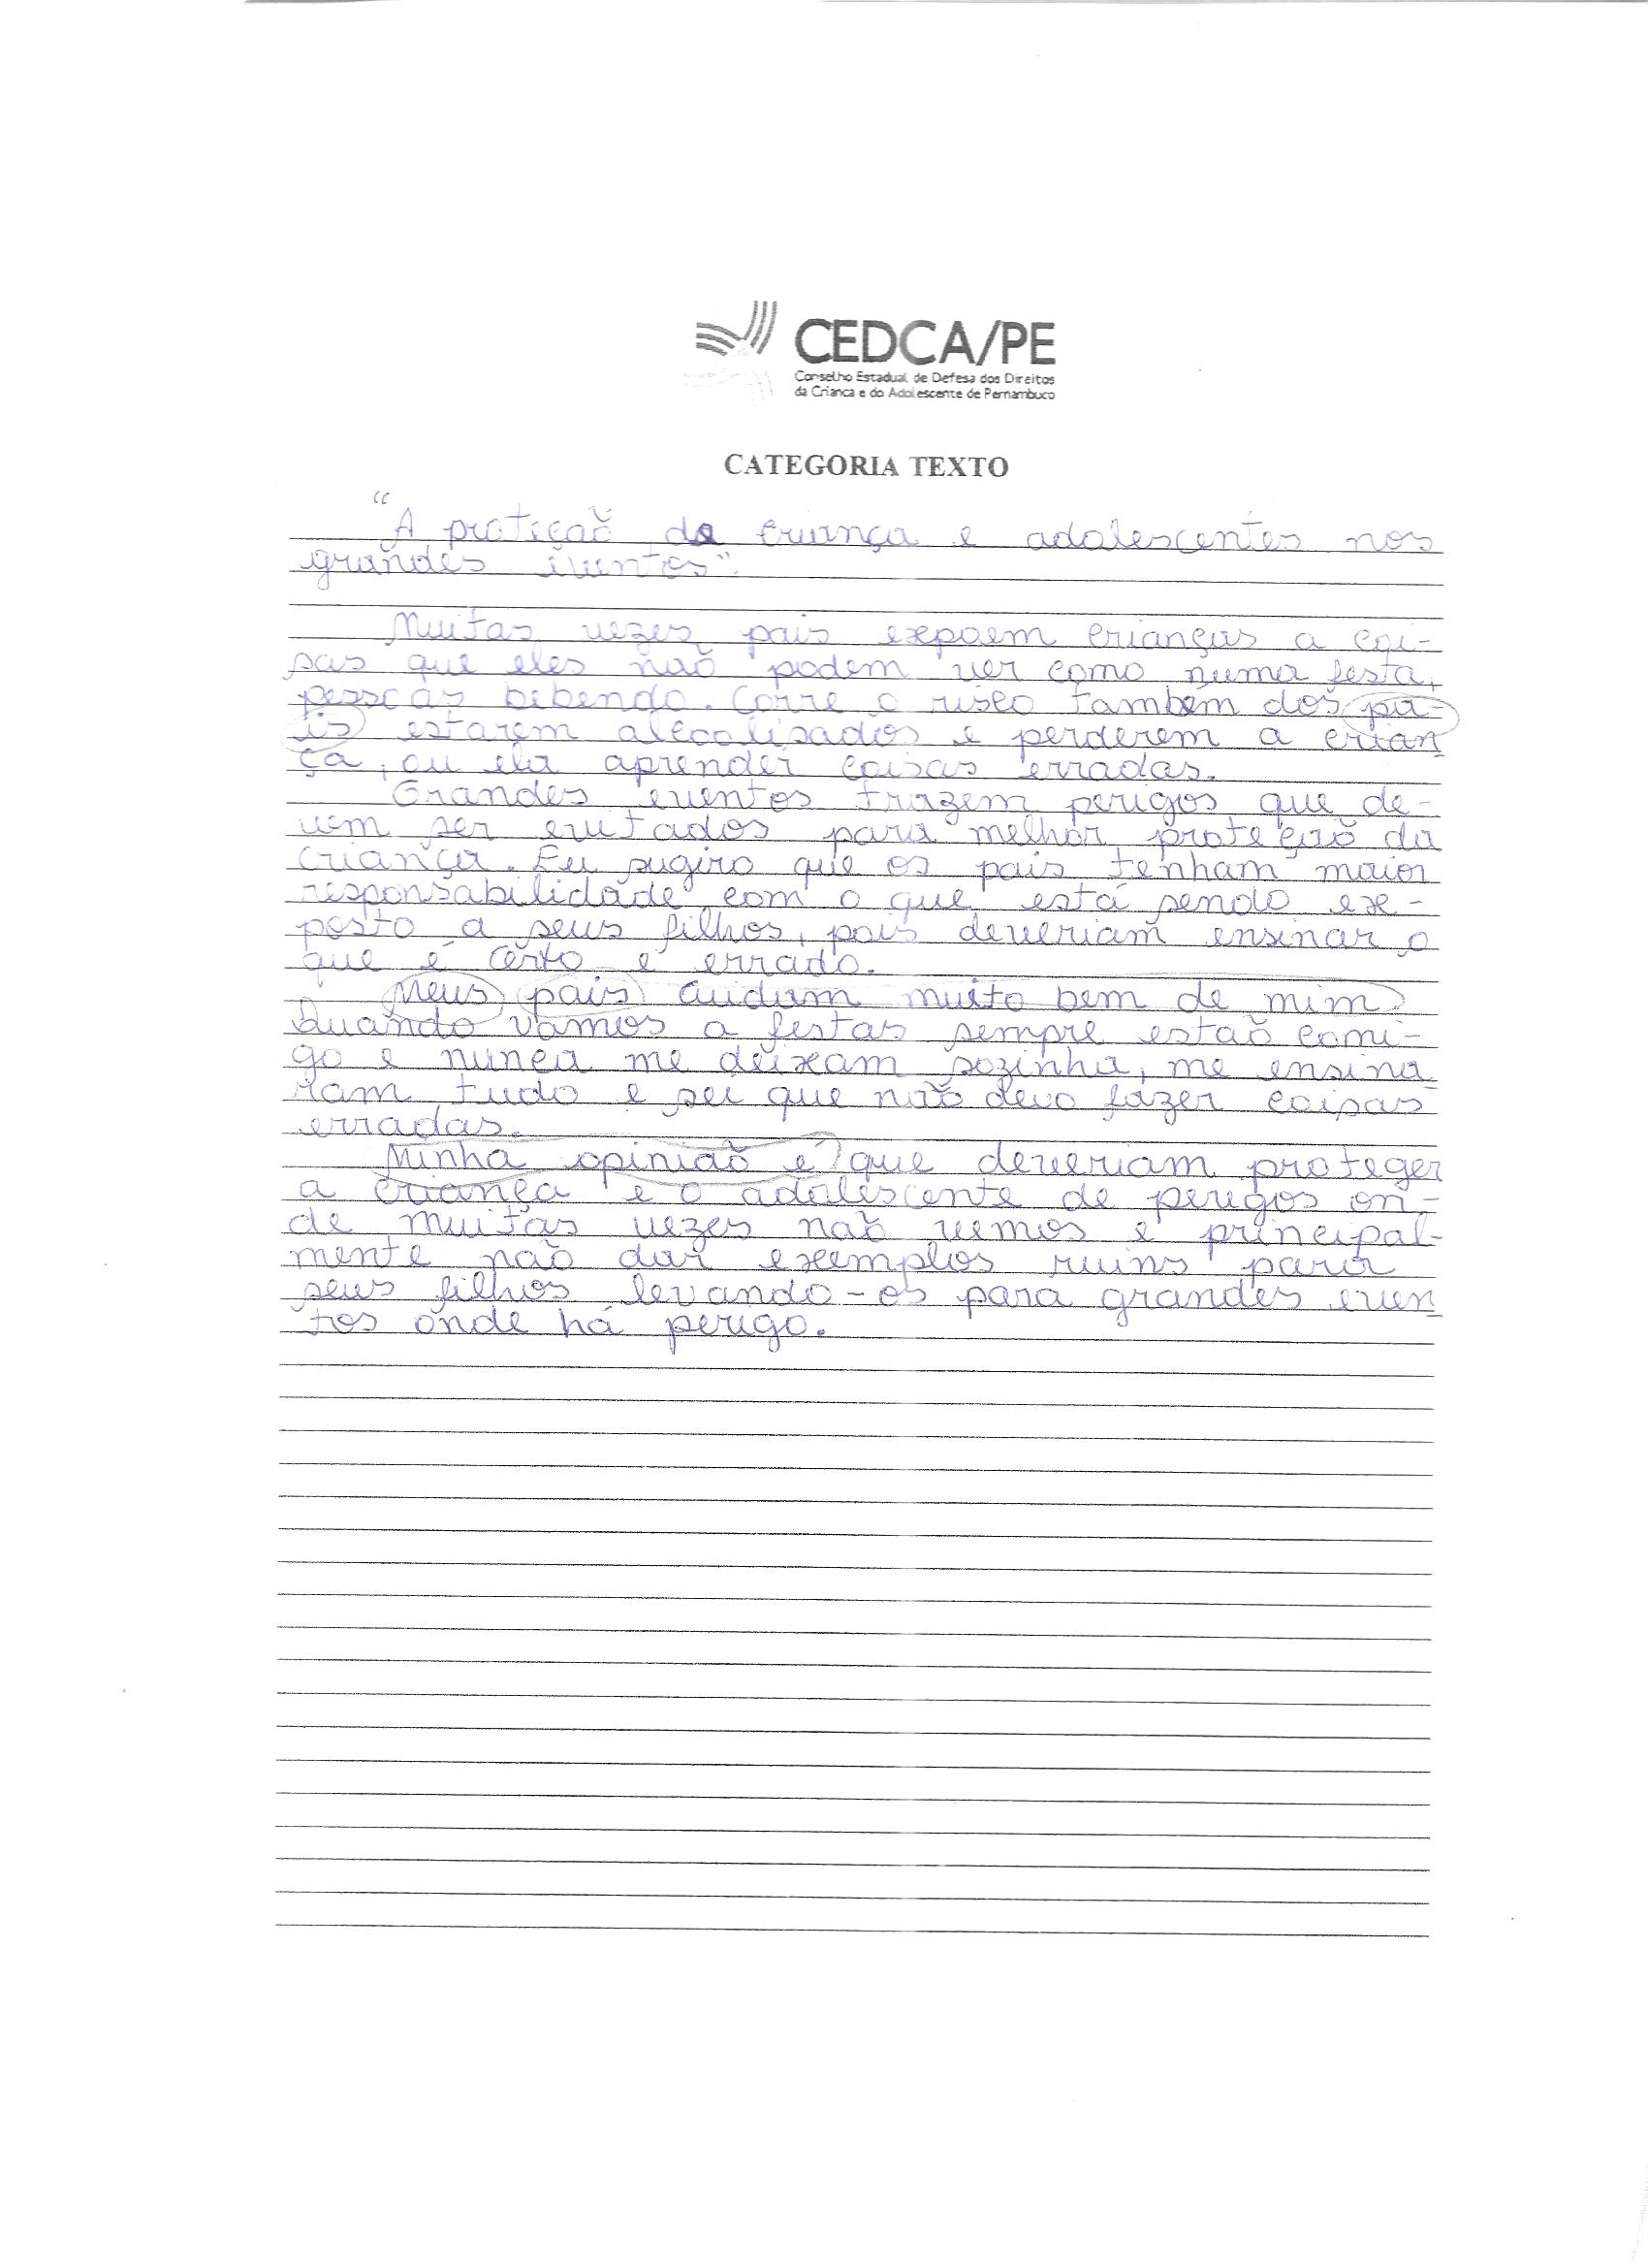 CEDCA/PE
Conselho Estadual de Defesa dos Direitos
da Criança e do Adolescente de Pernambuco
CATEGORIA TEXTO
"A proteção da criança e adolescentes nos
grandes eventos".
Muitas vezes pais expoem crianças a coi-
sas que eles não podem ver como numa festa,
pessoas bebendo. Corre o risco também dos pa-
is estarem alcoolisados e perderem a crian
ça, ou ela aprender coisas erradas.
Grandes eventos trazem perigos que de-
vem ser evitados para melhor proteção da
criança. Eu sugiro que os pais tenham maior
responsabilidade com o que está sendo ex-
posto a seus filhos, pois deveriam ensinar o
que é certo e errado.
Meus pais cuidam muito bem de mim
Quando vamos a festas sempre estão comi-
go e nunca me deixam sozinha, me ensina
ram tudo e sei que não devo fazer coisas
erradas.
Minha opinião é que deveriam proteger
a criança e o adolescente de perigos on-
de muitas vezes não vemos e principal-
mente não dar exemplos ruins para
seus filhos levando-os para grandes even
tos onde há perigo.